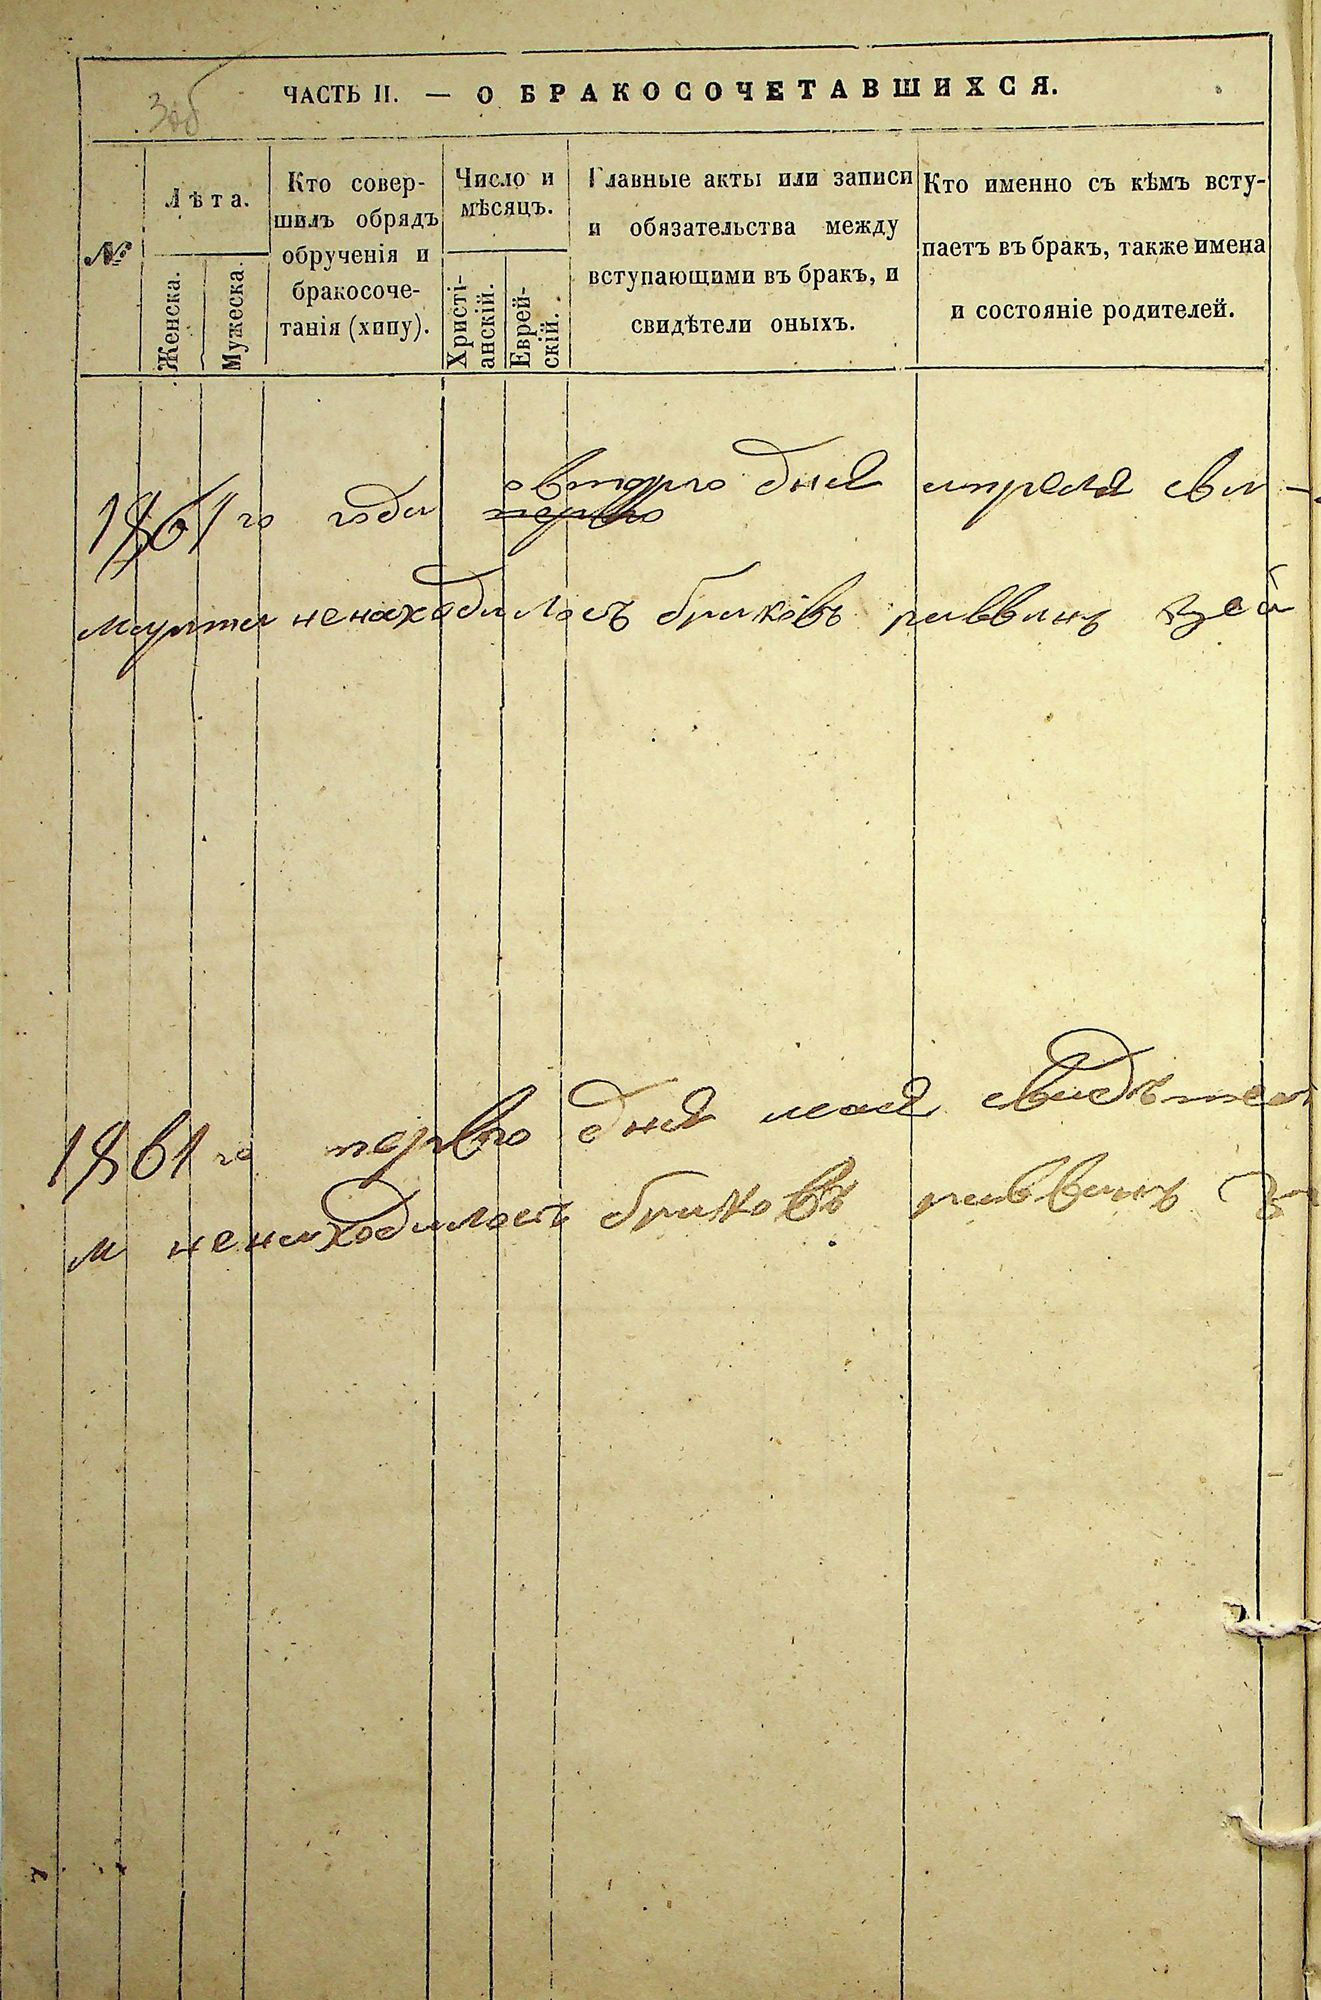 ЧАСТЬ II. — О БРАКОСОЧЕТАВШИХСЯ.
№
Лѣта.
Женска.
Мужеска.
Кто совер-
шилъ обрядъ
обрученія и
бракосоче-
танія (хипу).
Число и
мѣсяцъ.
Христі-
анскій.
Еврей-
скій.
Главные акты или записи
и обязательства между
вступающими въ бракъ, и
свидѣтели оныхъ.
Кто именно съ кѣмъ всту-
паетъ въ бракъ, также имена
и состояніе родителей.
1861 го года второго дня апреля
марта ненаходилось браковъ раввинъ
1861 го первго дня мая свидѣтел
м ненаходилось браковъ раввинъ